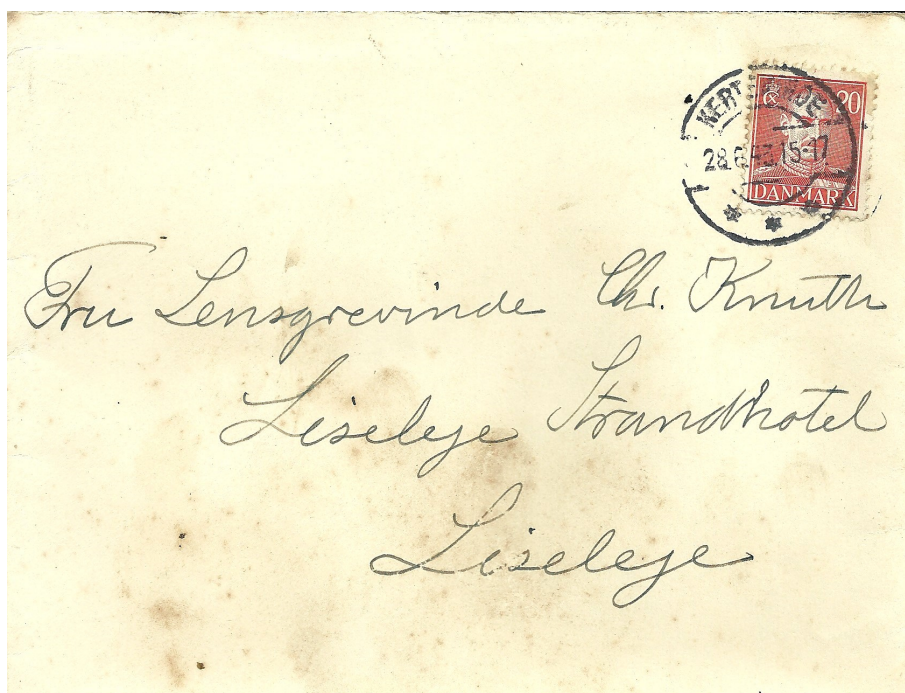 20
28.6. 15-17
DANMARK
Fru Lensgrevinde Chr. Knuth
Liseleje Strandhotel
Liseleje